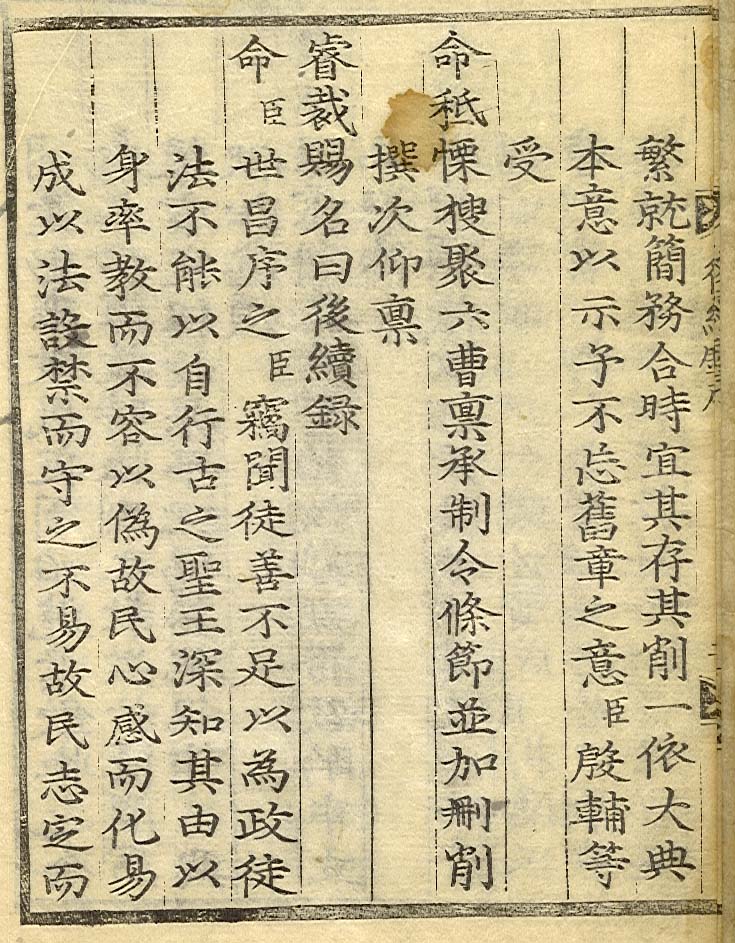 繁就簡務合時宜其存其削一依大典
本意以示予不忘舊章之意臣殷輔等
受
命秪慄搜聚六曹禀承制令條節並加刪削
撰次仰禀
睿裁賜名曰後續録
命臣世昌序之臣竊聞徒善不足以為政徒
法不能以自行古之聖王深知其由以
身率教而不容以偽故民心感而化易
成以法設禁而守之不易故民志定而